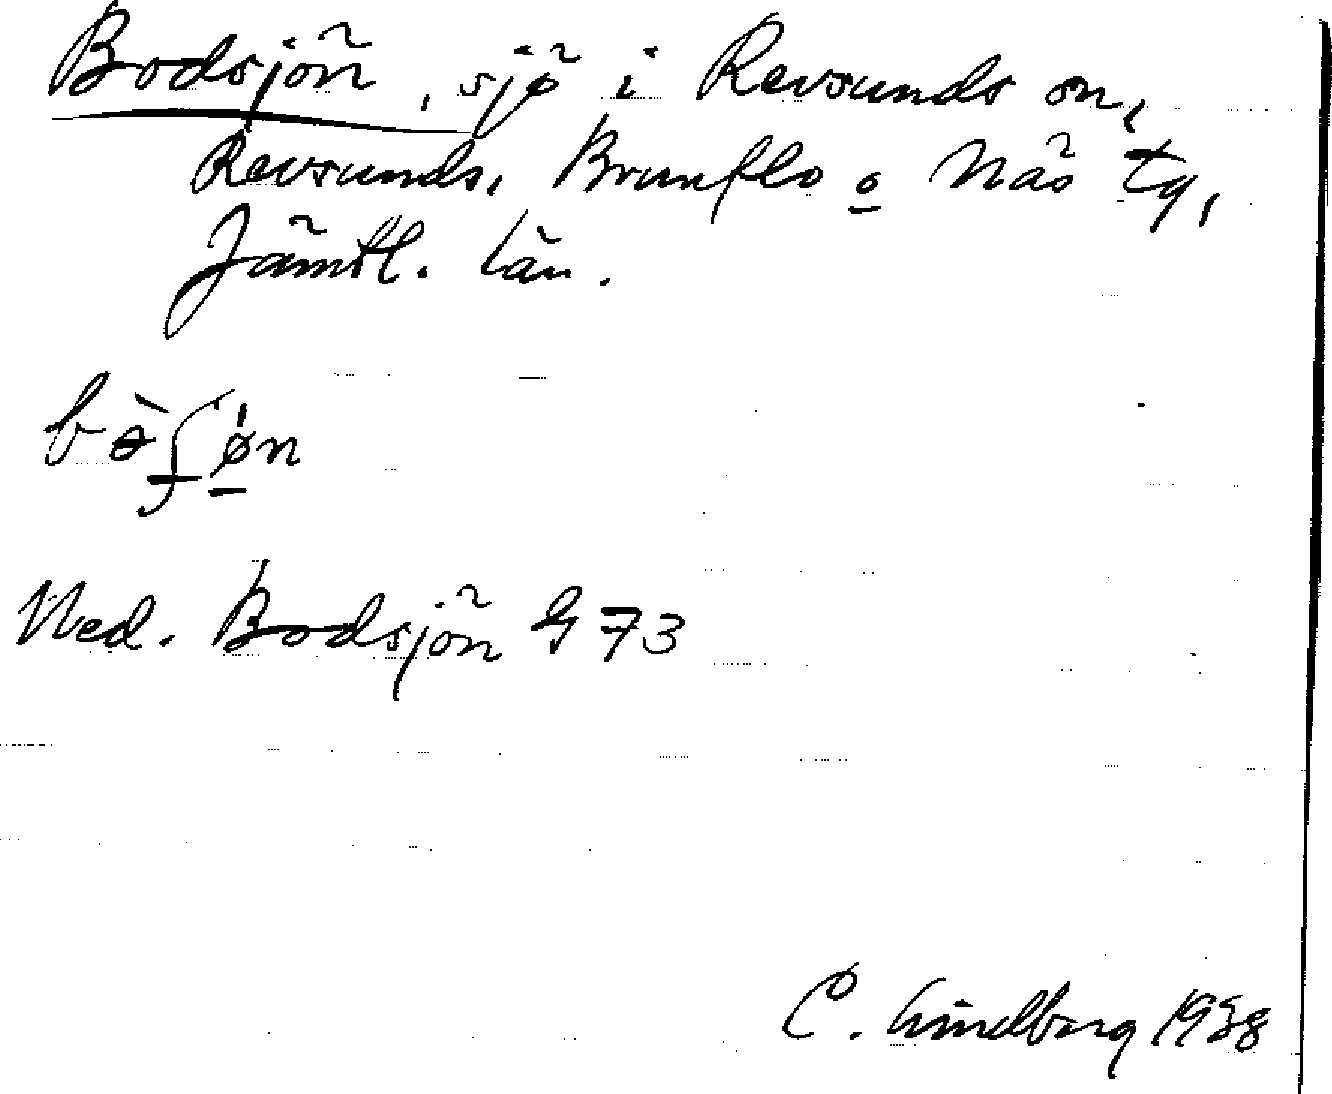 Bodsjön, sjö i Revsunds sn,
Revsunds, Brunflo o Näs tg,
Jämtl. län.
Ned. Bodsjön G 73
C. Lindberg 1938